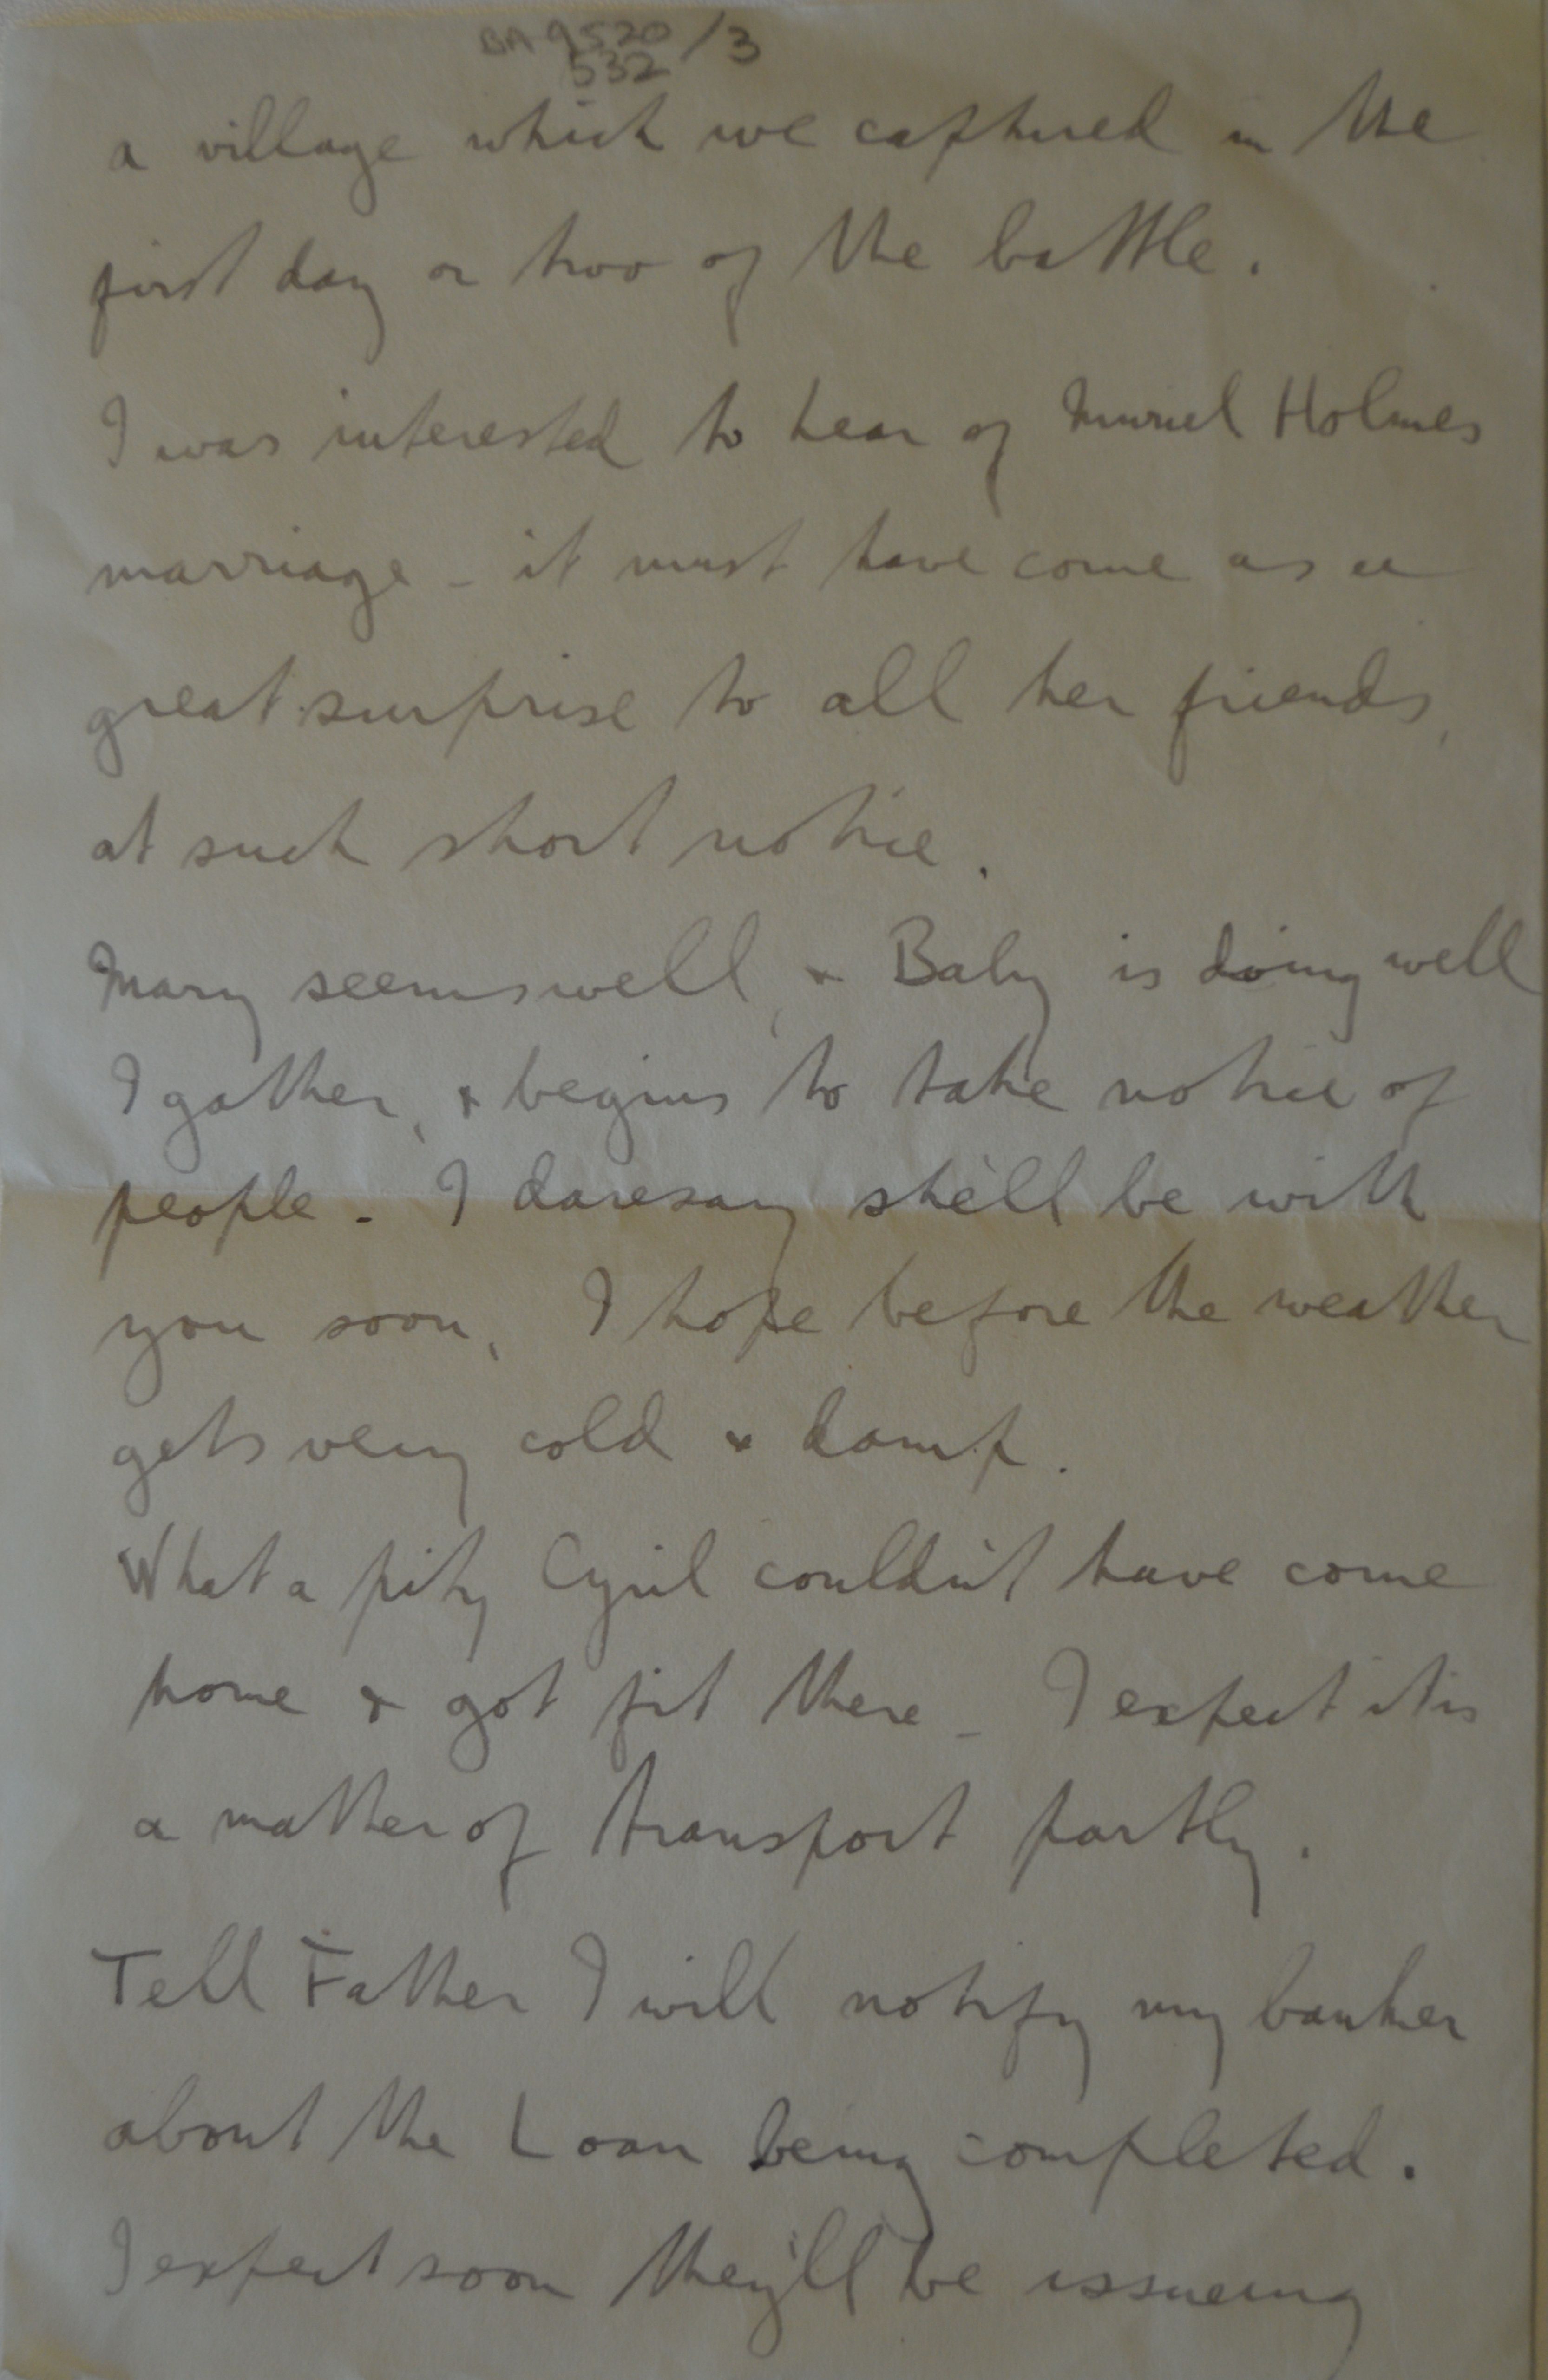 BA 9520/3
532
a village which we captured in the
first day or two of the battle.
I was interested to hear of Muriel Holmes
marriage - it must have come as a
great surprise to all her friends,
at such short notice.
Mary seems well, & Baby is doing well
I gather, & begins to take notice of
people - I daresay she'll be with
you soon, I hope before the weather
gets very cold & damp.
What a pity Cyril couldn't have come
home & got fit there - I expect it is
a matter of transport partly.
Tell Father I will notify my banker
about the Loan being completed.
I expect soon they'll be issueing